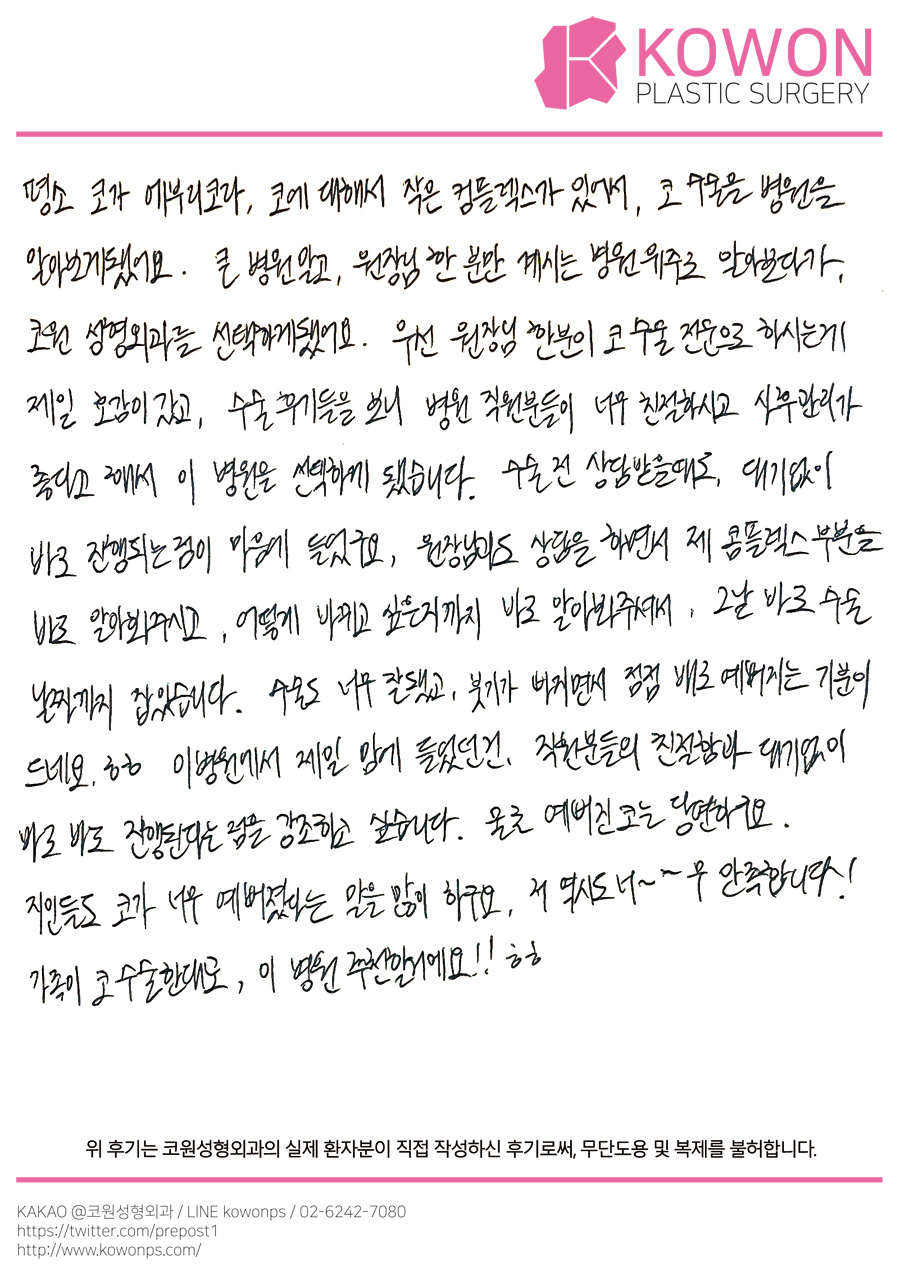 KOWON
PLASTIC SURGERY
평소 코가 메부리코라, 코에 대해서 작은 컴플렉스가 있어서, 코 수술을 병원을
알아보게됐어요. 큰 병원말고, 원장님 한 분만 계시는 병원위주로 알아보다가,
코원 성형외과를 선택하게됐어요. 우선 원장님 한분이 코 수술 전문으로 하시는게
제일 호감이 갔고, 수술 후기들을 보니 병원 직원분들이 너무 친절하시고 사후관리가
좋다고 해서 이 병원을 선택하게 됐습니다. 수술 전 상담받을때도, 대기없이
바로 진행되는점이 마음에 들었구요, 원장님과도 상담을 하면서 제 콤플렉스 부분을
바로 알아봐주시고, 어떻게 바뀌고 싶은지까지 바로 알아봐주셔서, 그날 바로 수술
날짜까지 잡았습니다. 수술도 너무 잘됐고, 붓기가 빠지면서 점점 배로 예뻐지는 기분이
드네요.ㅎㅎ 이병원에서 제일 맘에 들었던건, 직원분들의 친절함과 대기없이
바로 바로 진행된다는 점을 강조하고 싶습니다. 물론 예뻐진 코는 당연하구요.
지인들도 코가 너무 예뻐졌다는 말을 많이 하구요, 저 역시도 너~~무 만족합니다~!
가족이 코 수술한대도, 이 병원 추천할거에요!! ㅎㅎ
위 후기는 코원성형외과의 실제 환자분이 직접 작성하신 후기로써, 무단도용 및 복제를 불허합니다.
KAKAO @코원성형외과 / LINE kowonps / 02-6242-7080
https://twitter.com/prepost1
http://www.kowonps.com/